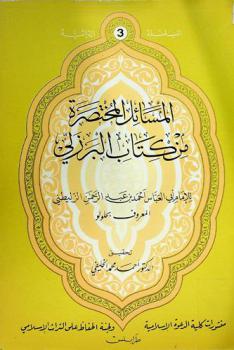 السلسلة التراثية
3
المسائل المختصرة
من كتاب البرزلي
للإمام أبي العباس أحمد بن عبد الرحمن الزليطني
المعروف بحلولو
تحقيق
الدكتور أحمد محمد الخليفي
منشورات كلية الدعوة الإسلامية ولجنة الحفاظ على التراث الإسلامي
طرابلس